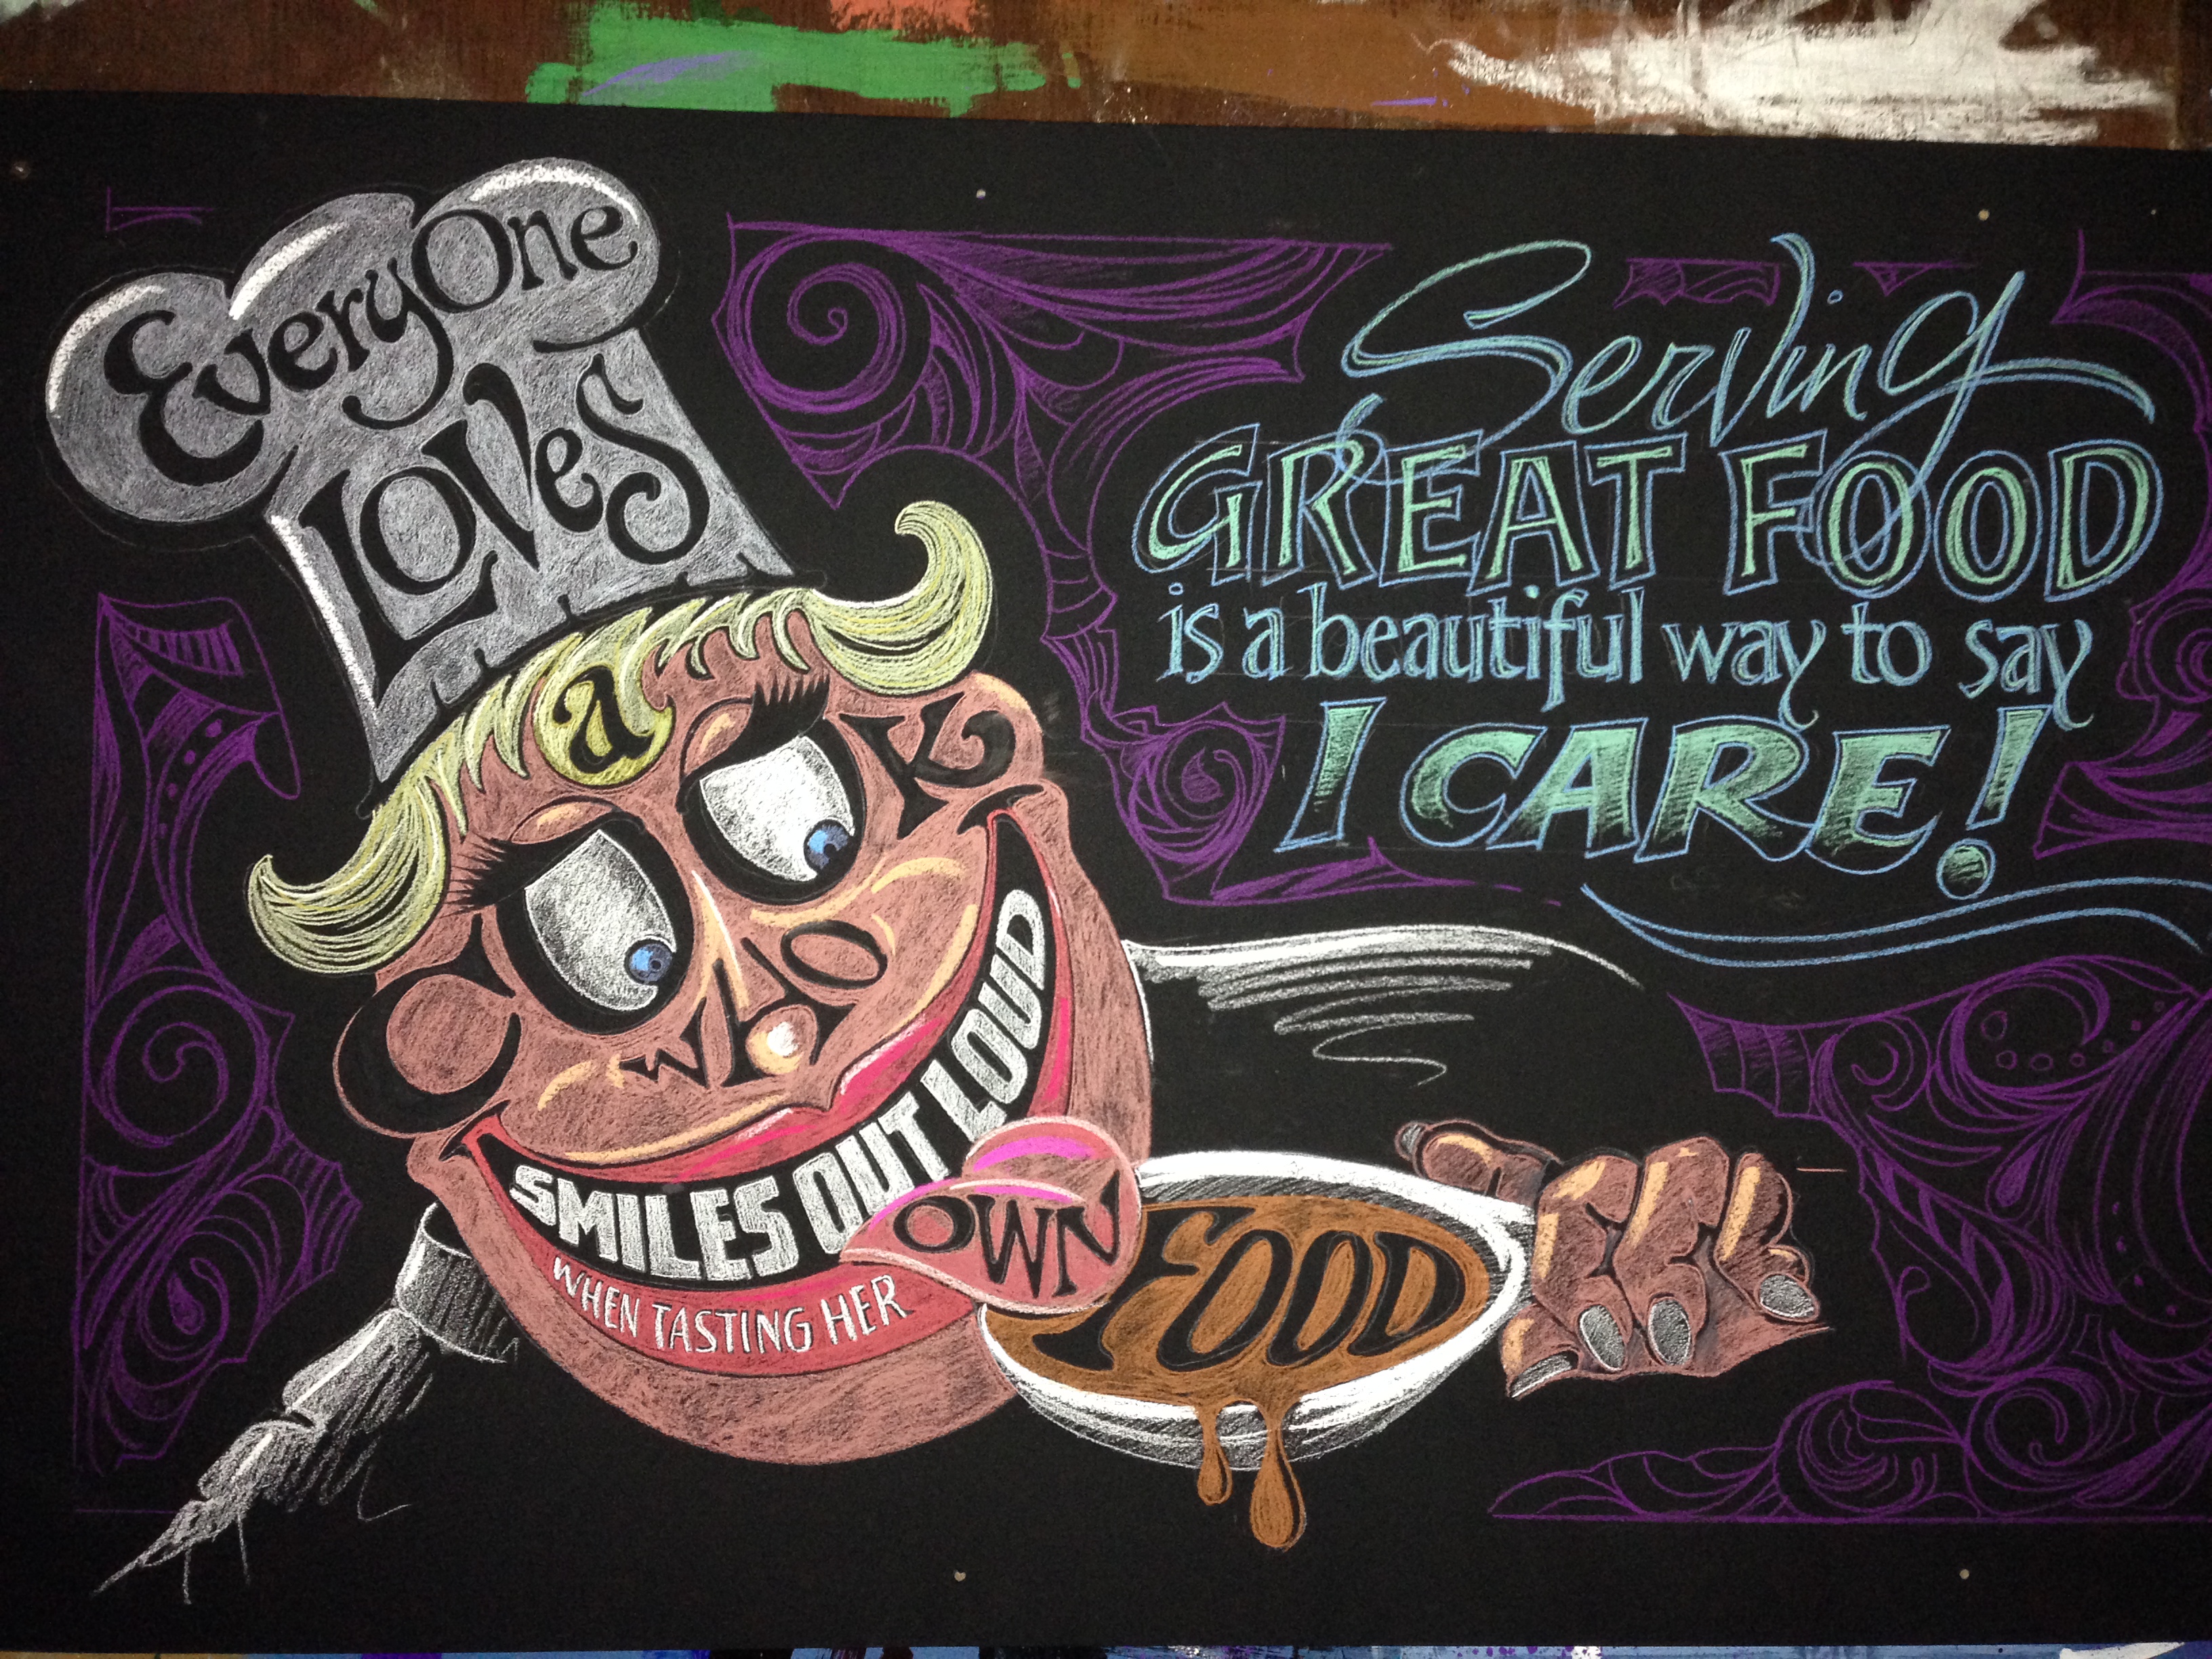 EveryOne
LOVeS
a
COOK
wHO
SMILES OUT LOUD
WHEN TASTING HER
OWN
FOOD
Serving
GREAT FOOD
is a beautiful way to say
I CARE!